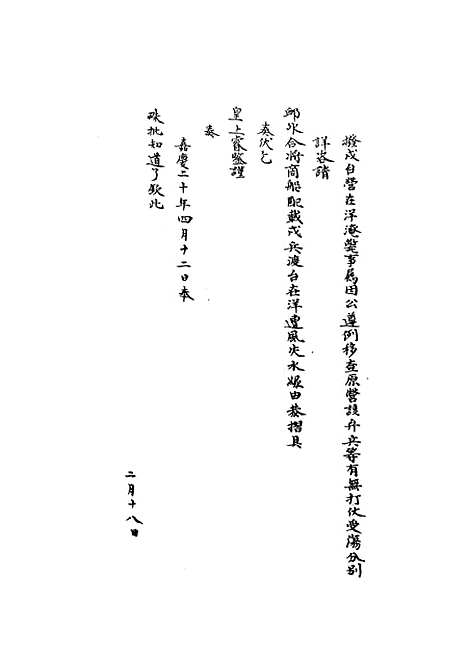 撥戍台營在洋淹斃事屬因公遵例移查原營該弁兵等有無打仗受傷分别
詳咨請
卹外合將商船配載戍兵渡台在洋遭風失水緣由恭摺具
奏伏乞
皇上睿鑒謹
奏
嘉慶二十年四月十二日奉
硃批知道了欽此
二月十八日